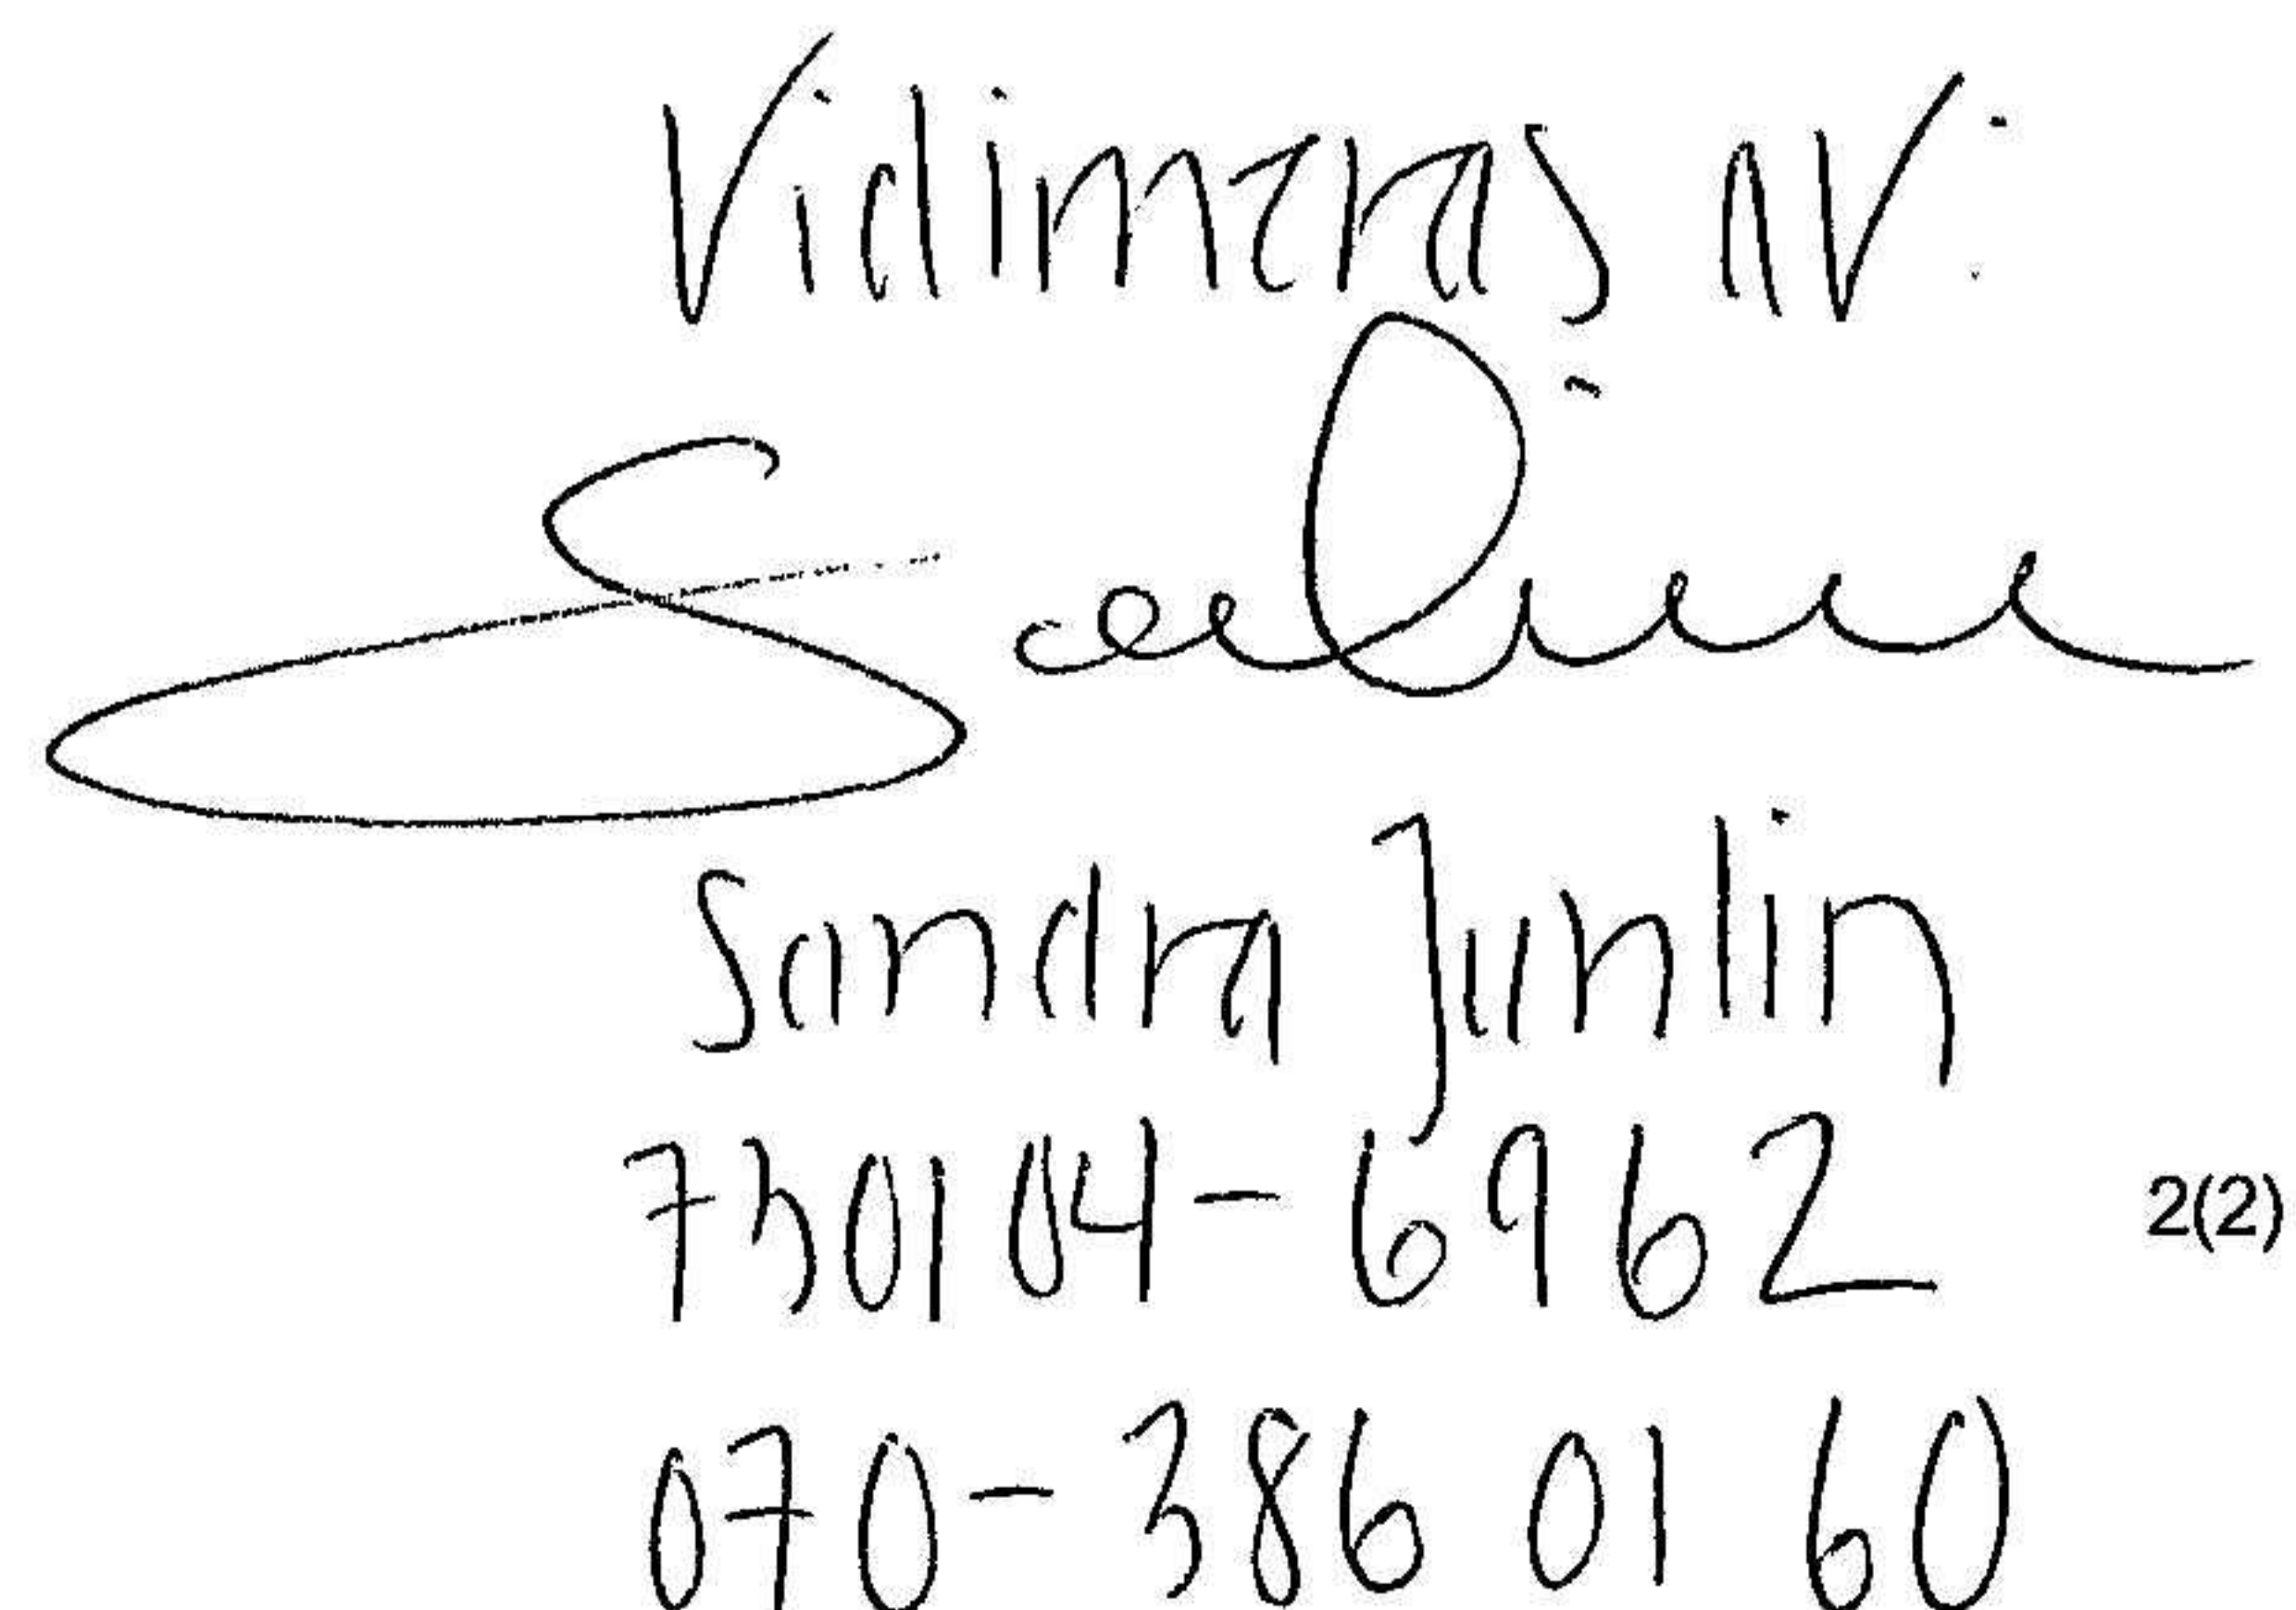 Vidimeras av:
Sandra Junlin
730104-6962
2(2)
070-386 01 60